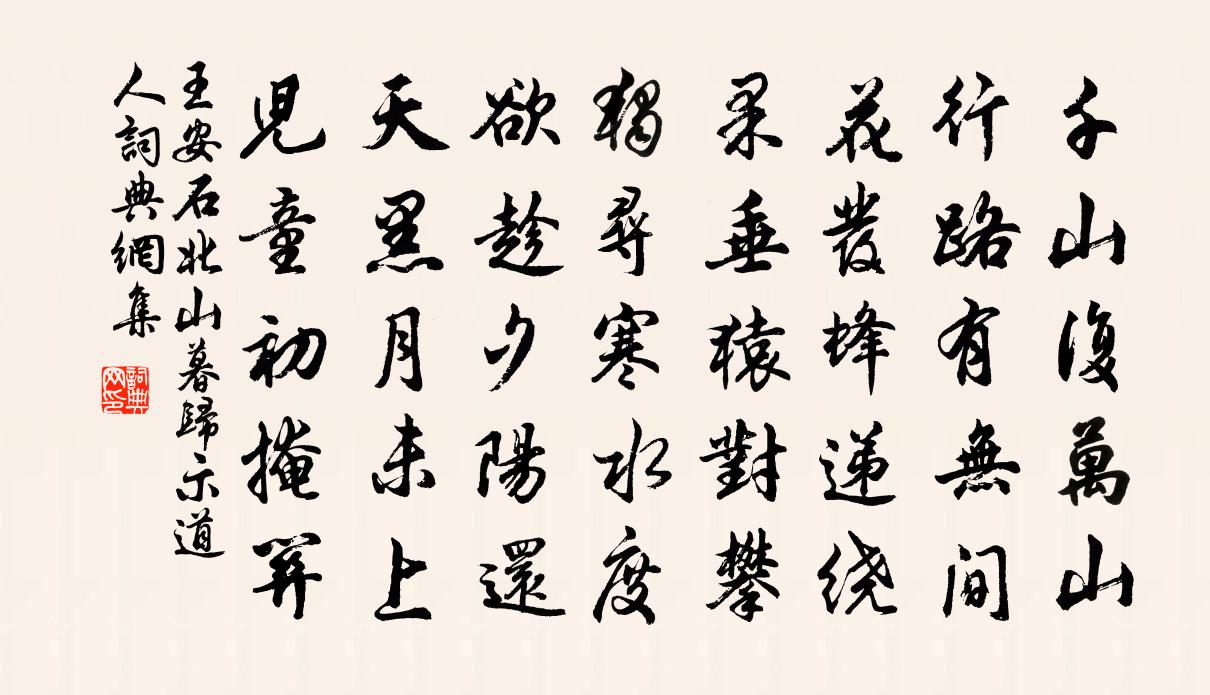 千山復萬山
行路有無間
花發蜂递绕
果垂猿對攀
獨尋寒水度
欲趁夕陽還
天黑月未上
兒童初掩關
王安石北山暮歸示道
人詞典網集
詞典网印